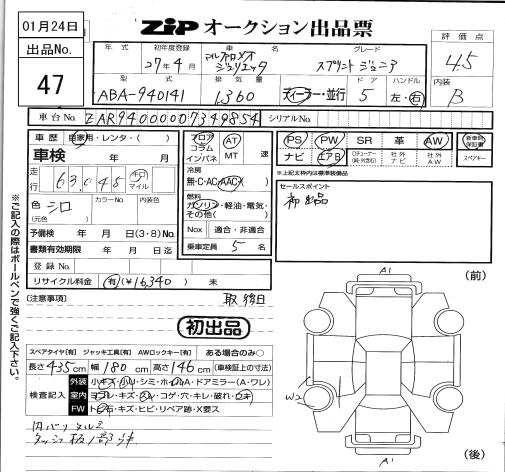 01月24日
出品No.
47
ZIP オークション出品票
評価点
4.5
内装
B
年式 初年度登録 車名 グレード
27年4月 アルファロメオ ジュリエッタ スプリント ジュニア
型式 排気量 ドア ハンドル
ABA-940141 1,360 ディーラー・並行 5 左・右
車台No. ZAR94000007349854 シリアルNo.
車歴 自家用・レンタ・( )
車検 年 月
走行 63,045 キロ マイル
色 (元色) シロ カラーNo. 内装色
予備検 年 月 日(3・8)No.
書類有効期限 年 月 日迄
登録No.
リサイクル料金 有(¥16,340) 未
フロア コラム インパネ AT MT 速
冷房
無・C・AC・AAC
燃料
ガソリン・軽油・電気・その他( )
Nox 適合・非適合
乗車定員 5 名
PS PW SR 革 AW 新車時保証書
ナビ エアB 社外ナビ 社外AW スペアキー
※上記太枠内は標準装備品
セールスポイント
初出品
[注意事項] 取 後日
初出品
スペアタイヤ[有] ジャッキ工具[有] AWロックキー[有] ある場合のみ○
長さ435cm 幅180cm 高さ146cm (車検証上の寸法)
検査記入
外装 小キズ・小リ・シミ・ホイルA・ドアミラー(A・ワレ)
室内 ヨゴレ・キズ・スレ・コゲ・穴・キレ・破れ・ウキ
FW トビ石・キズ・ヒビ・リペア跡・X要ス
内バリ タルミ
A1
(前)
W2
A1
(後)
※ご記入の際はボールペンで強くご記入下さい。